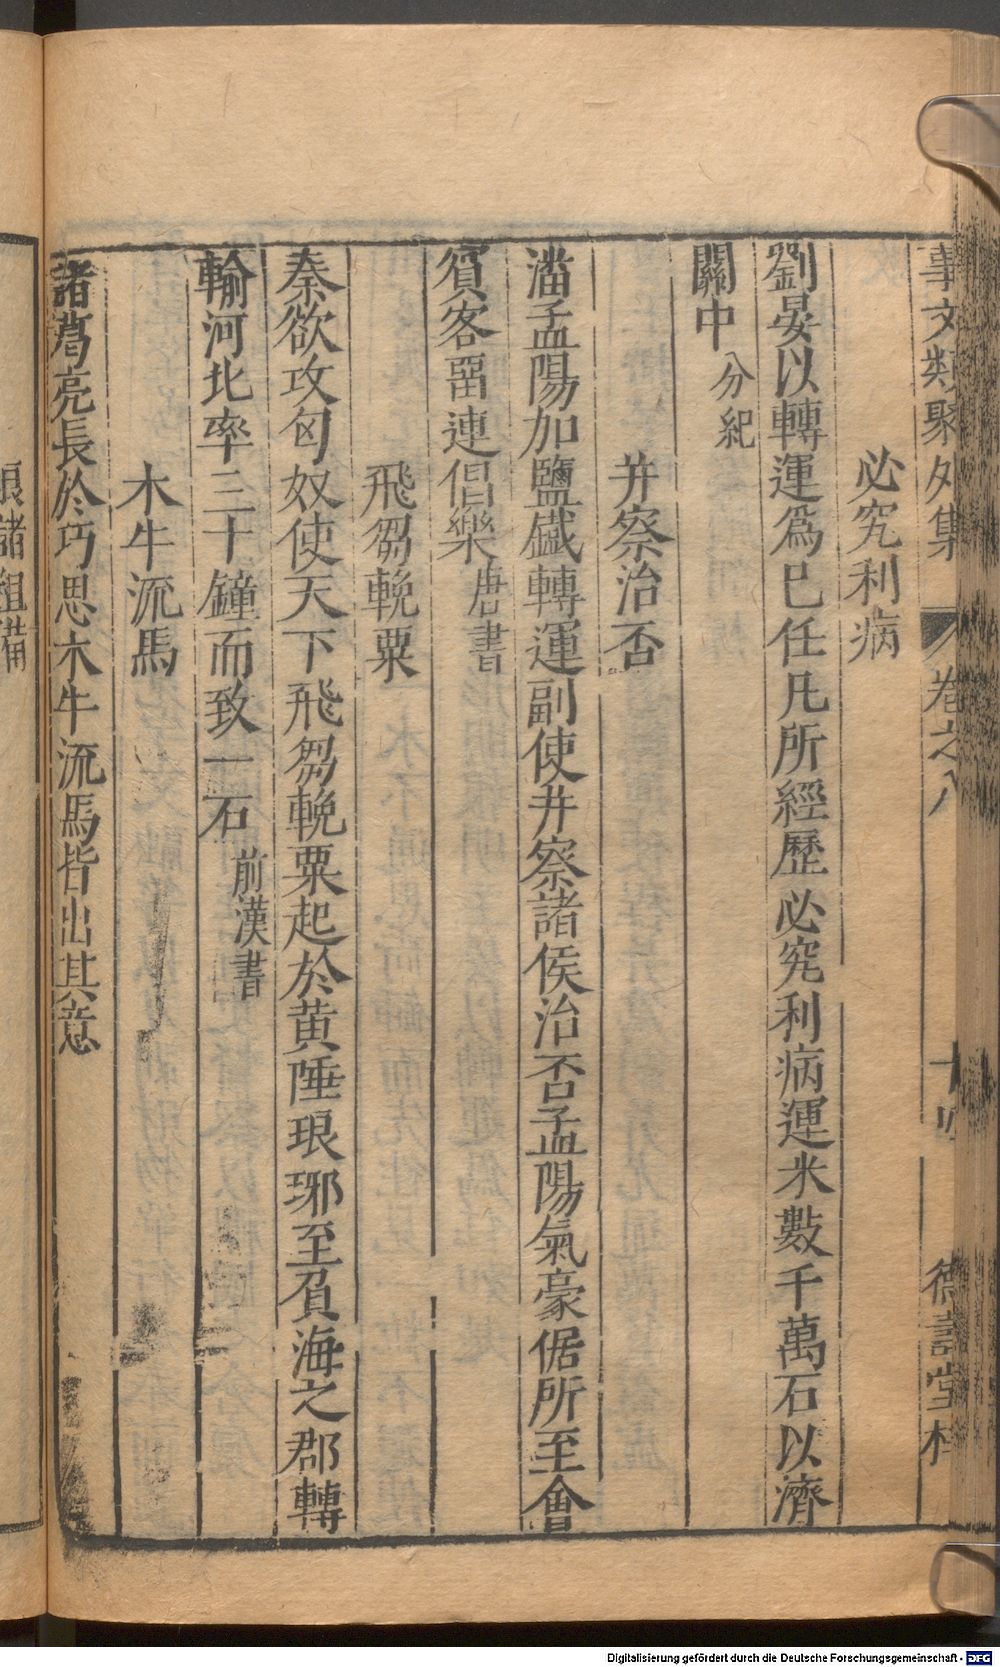 事文類聚外集 卷之八 十四 德壽堂梓
必究利病
劉晏以轉運爲巳任凡所經歷必究利病運米數千萬石以濟
關中分紀
并察治否
潘孟陽加鹽鐵轉運副使并察諸侯治否孟陽氣豪倨所至會
賓客畱連倡樂唐書
飛芻輓粟
秦欲攻匈奴使天下飛芻輓粟起於黄陲琅琊至負海之郡轉
輸河北率三十鐘而致一石前漢書
木牛流馬
諸葛亮長於巧思木牛流馬皆出其意
Digitalisierung gefördert durch die Deutsche Forschungsgemeinschaft - DFG